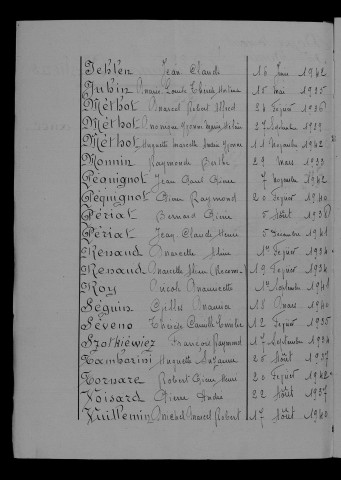 Jehlen Jean Claude 16 Juin 1942
Jubin Marie Louise 15 mai 1935
Méthot Marcel Robert Alfred 26 Février 1936
Méthot Monique Yvonne 27 Septembre 1939
Méthot Huguette Marcelle Yvonne 11 Novembre 1942
Monnin Raymonde Berthe 29 Mars 1933
Péquignot Jean Paul Pierre 7 Novembre 1942
Péquignot Pierre Raymond 20 Février 1940
Périat Bernard Pierre 5 Août 1938
Périat Jean Claude Henri 5 Décembre 1941
Renaud Marcelle Aline 1er Février 1934
Renaud 19 Février 1934
Roy Nicole Mauricette 1er Septembre 1941
Séguin Gilles Maurice 18 Mars 1940
Séveno Thérèse Camille 12 Février 1935
Szotkiéwiez François Raymond 17 Septembre 1934
Tamborini Huguette Suzanne 26 Août 1937
Tornare Robert Pierre 20 Février 1942
Voisard Pierre André 22 Août 1937
Vuillemin Michel Marcel Robert 17 Août 1940